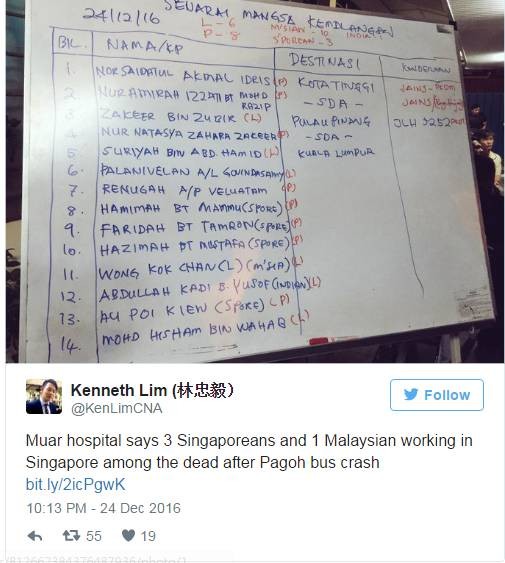 24/12/16
SENARAI MANGSA KEMALANGAN
L - 6 M'SIAN - 10 INDIA 1
P - 8 S'POREAN - 3
BIL. NAMA/KP DESTINASI KENDERAAN
1. NORSAIDATUL AKMAL IDRIS (P) KOTA TINGGI JAINS-
2. NUR AMIRAH IZZATI BT MOHD RAZIP (P) - SDA - JAINS
3. ZAKEER BIN ZUBIR (L) PULAU PINANG JLH 3252
4. NUR NATASYA ZAHARA ZAKEER (P) - SDA -
5. SURIYAH BIN ABD. HAMID (L) KUALA LUMPUR
6. PALANIVELAN A/L GOVINDASAMY (L)
7. RENUGAH A/P VELUATAM (P)
8. HAMIMAH BT MAMMU (SPORE) (P)
9. FARIDAH BT TAMRON (SPORE) (P)
10. HAZIMAH BT MUSTAFA (SPORE) (P)
11. WONG KOK CHAN (L) (M'SIA) (L)
12. ABDULLAH KADI B. YUSOF (INDIAN) (L)
13. AU POI KIEW (SPORE) (P)
14. MOHD HISHAM BIN WAHAB (L)
Kenneth Lim (林忠毅)
@KenLimCNA
Follow
Muar hospital says 3 Singaporeans and 1 Malaysian working in
Singapore among the dead after Pagoh bus crash
bit.ly/2icPgwK
10:13 PM - 24 Dec 2016
55 19